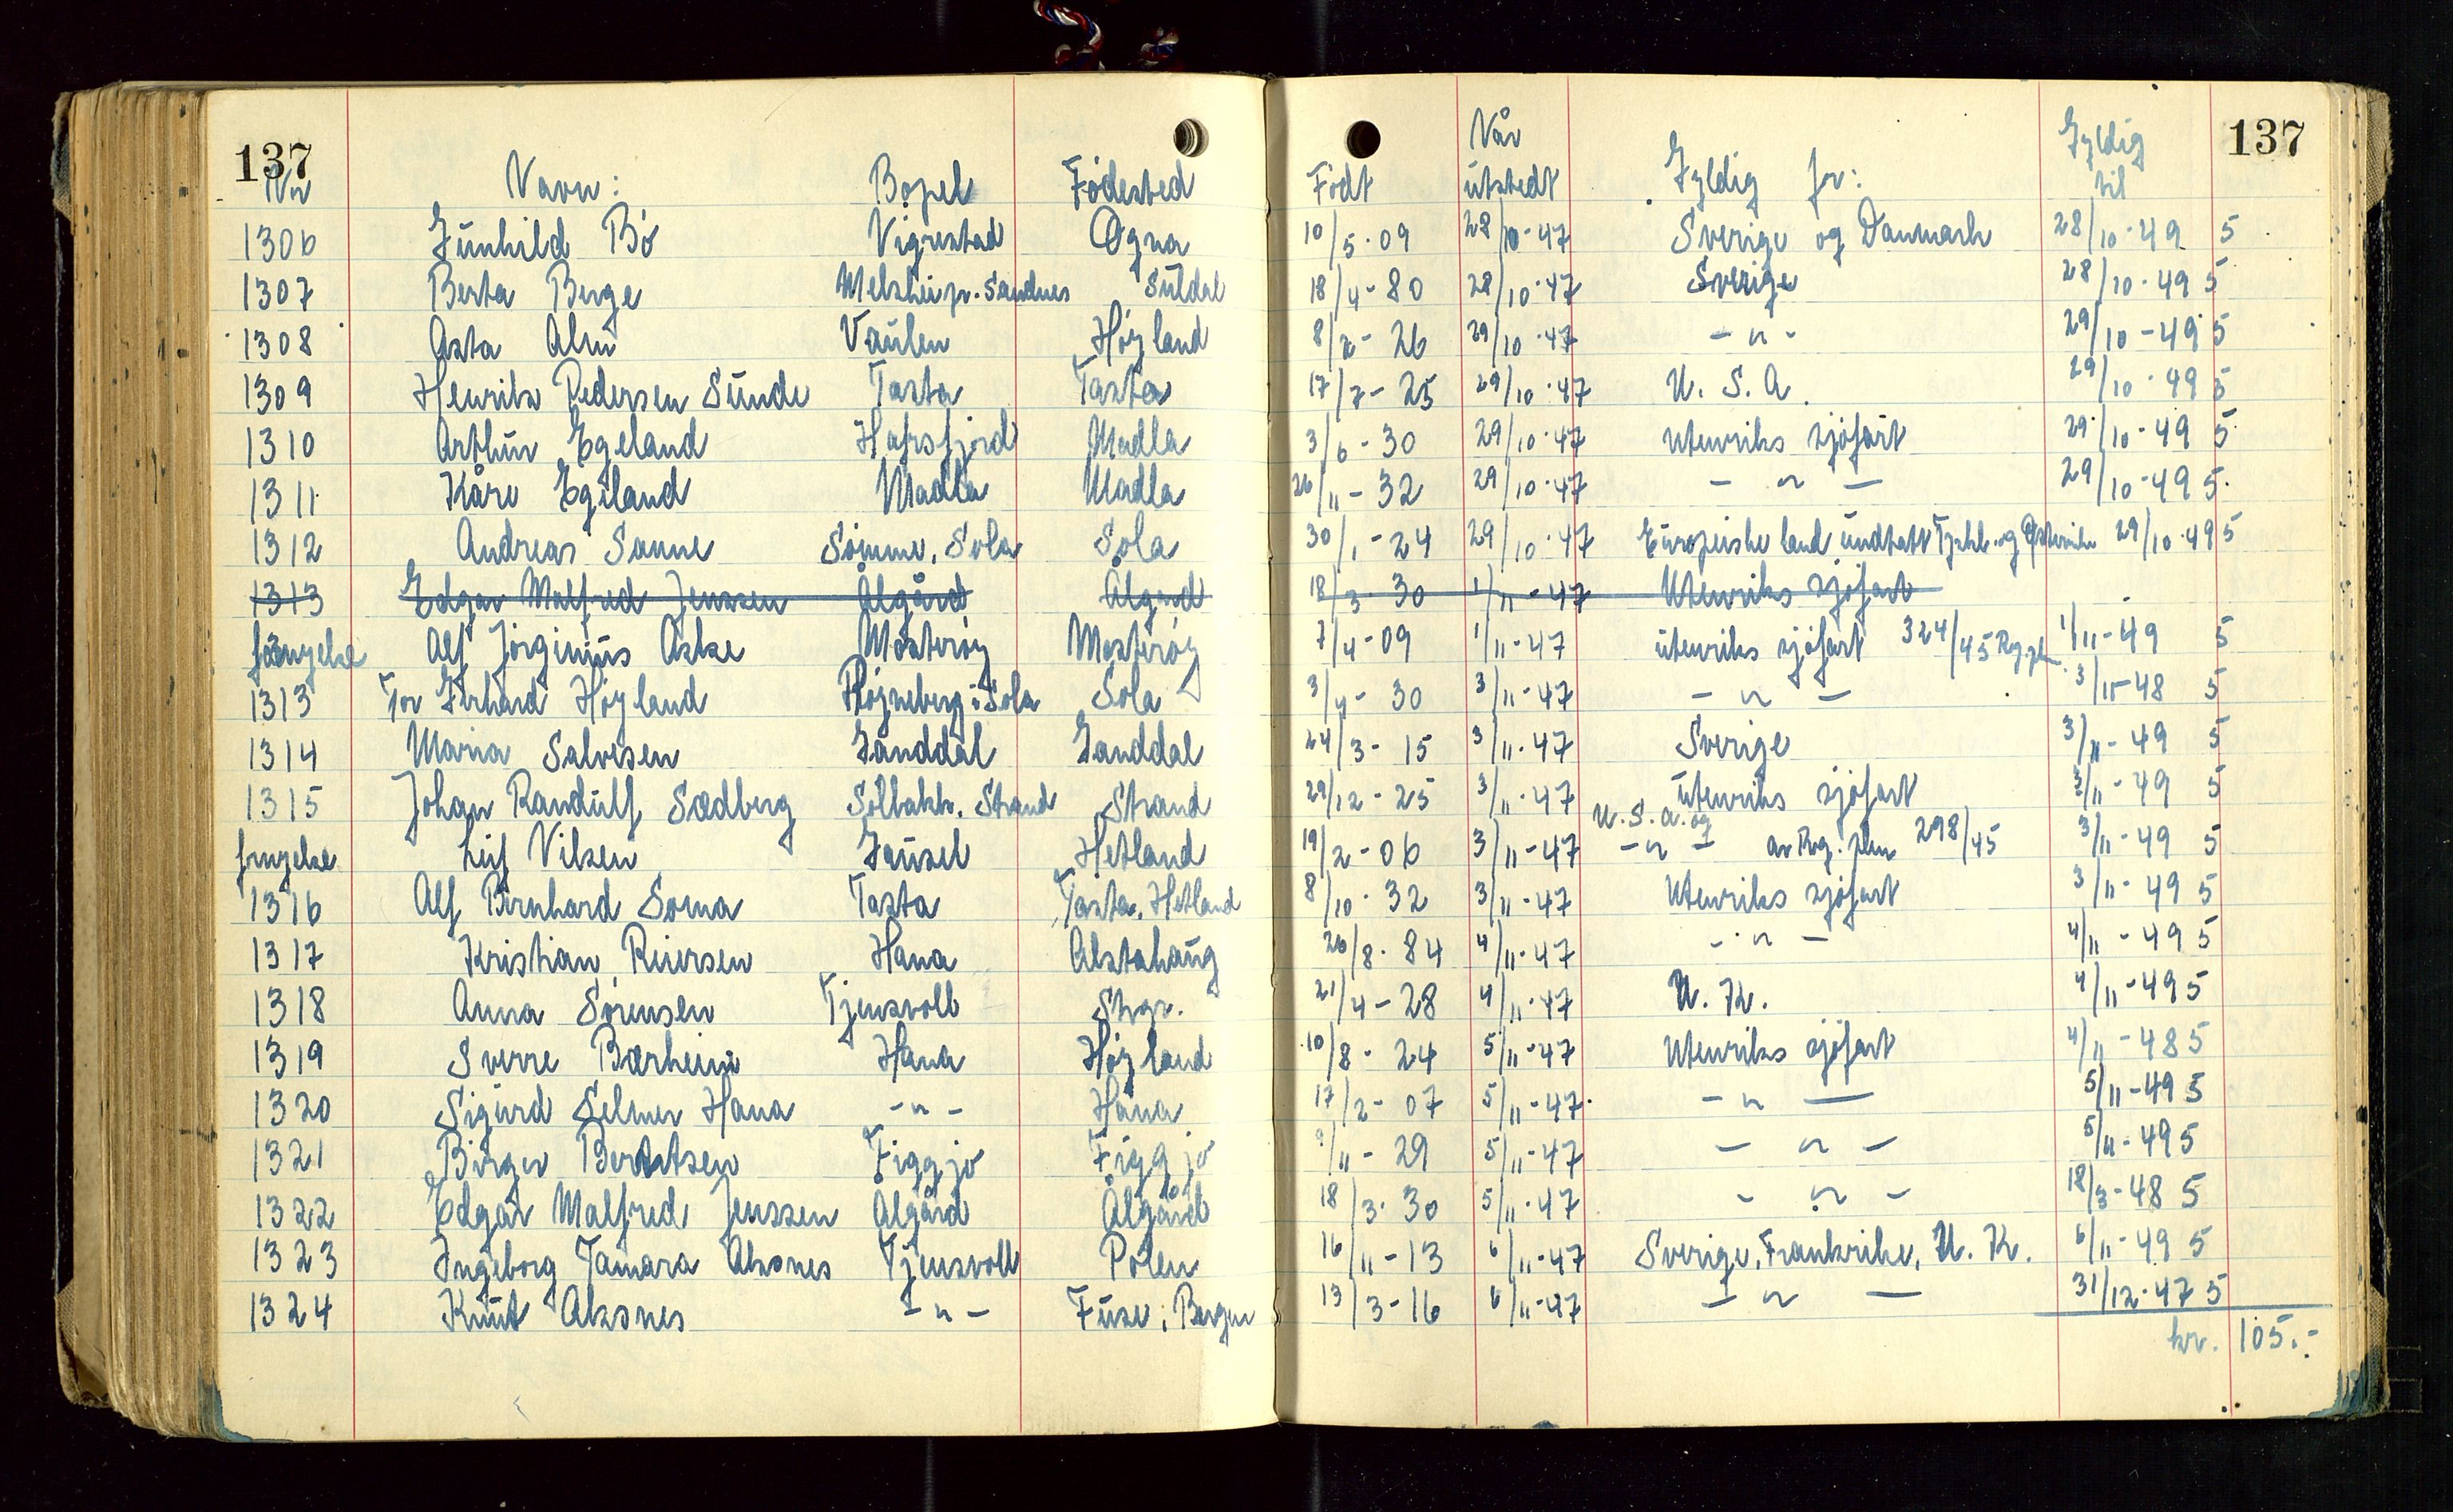 137 137
Når Gyldig
Nr Navn: Bopel Födested Födt utstedt Gyldig for: til
1306 Gunhild Bö Vigrestad Ogna 10/5-09 28/10-47 Sverige og Danmark 28/10-49 5
1307 Berta Berge Melshei pr. Sandnes Suldal 18/4-80 28/10-47 Sverige 28/10-49 5
1308 Asta Vaulen Höyland 8/2-26 29/10-47 -"- 29/10-49 5
1309 Henrik Pedersen Sunde Tasta Tasta 17/7-25 29/10-47 U.S.A. 29/10-49 5
1310 Arthur Egeland Hafrsfjord Madla 3/6-30 29/10-47 Utenriks sjöfart 29/10-49 5
1311 Kåre Egeland Madla Madla 26/11-32 29/10-47 - " - 29/10-49 5
1312 Andreas Sanne Sömme, Sola Sola 30/1-24 29/10-47 Europeiske land undtatt Tyskl. og Østerrike 29/10-49 5
1313 Edgar Malfred Jenssen Ålgård Ålgård 18/3-30 1/11-47 Utenriks sjöfart
fornyelse Alf Jörginius Aske Mosteröy Mosteröy 7/4-09 1/11-47 utenriks sjöfart 324/45 Reg.pl. 1/11-49 5
1313 Tor Gerhard Höyland Röyneberg i Sola Sola 3/4-30 3/11-47 - " - 3/11-48 5
1314 Maria Salvesen Ganddal Ganddal 24/3-15 3/11-47 Sverige 3/11-49 5
1315 Johan Randulf Sædberg Solbakk. Strand Strand 29/12-25 3/11-47 utenriks sjöfart 3/11-49 5
U.S.A. og
frnyelse Leif Nilsen Gausel Hetland 19/2-06 3/11-47 - " - av Reg. plm 298/45 3/11-49 5
1316 Alf Bernhard Soma Tasta Tasta, Hetland 8/10-32 3/11-47 Utenriks sjöfart 3/11-49 5
1317 Kristian Reiersen Hana Alstahaug 26/8-84 4/11-47 - " - 4/11-49 5
1318 Anna Sörensen Tjensvoll Stvgr. 21/4-28 4/11-47 U.K. 4/11-49 5
1319 Sverre Bærheim Hana Höyland 10/8-24 5/11-47 Utenriks sjöfart 4/11-48 5
1320 Sigurd Selmer Hana -"- Hana 17/2-07 5/11-47 - " - 5/11-49 5
1321 Birger Berntsen Figgjo Figgjo 9/11-29 5/11-47 - " - 5/11-49 5
1322 Edgar Malfred Jenssen Ålgård Ålgård 18/3-30 5/11-47 - " - 18/3-48 5
1323 Ingeborg Tamara Aksnes Tjensvoll Polen 16/11-13 6/11-47 Sverige, Frankrike, U.K. 6/11-49 5
1324 Knut Aksnes -"- Fuse, Bergen 13/3-16 6/11-47 - " - 31/12-47 5
kr. 105.-